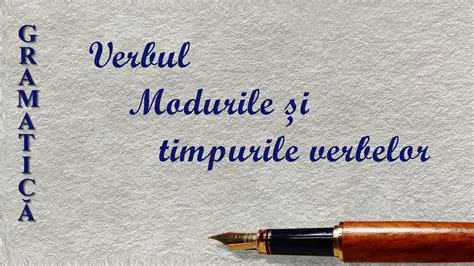 GRAMATICĂ
Verbul
Modurile și
timpurile verbelor